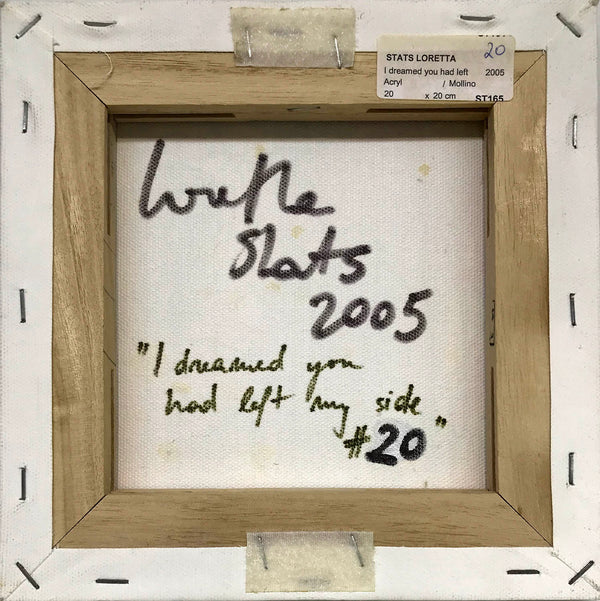 20
STATS LORETTA
I dreamed you had left 2005
Acryl / Mollino
20 x 20 cm ST165
Loretta
Stats
2005
"I dreamed you
had left my side
#20"